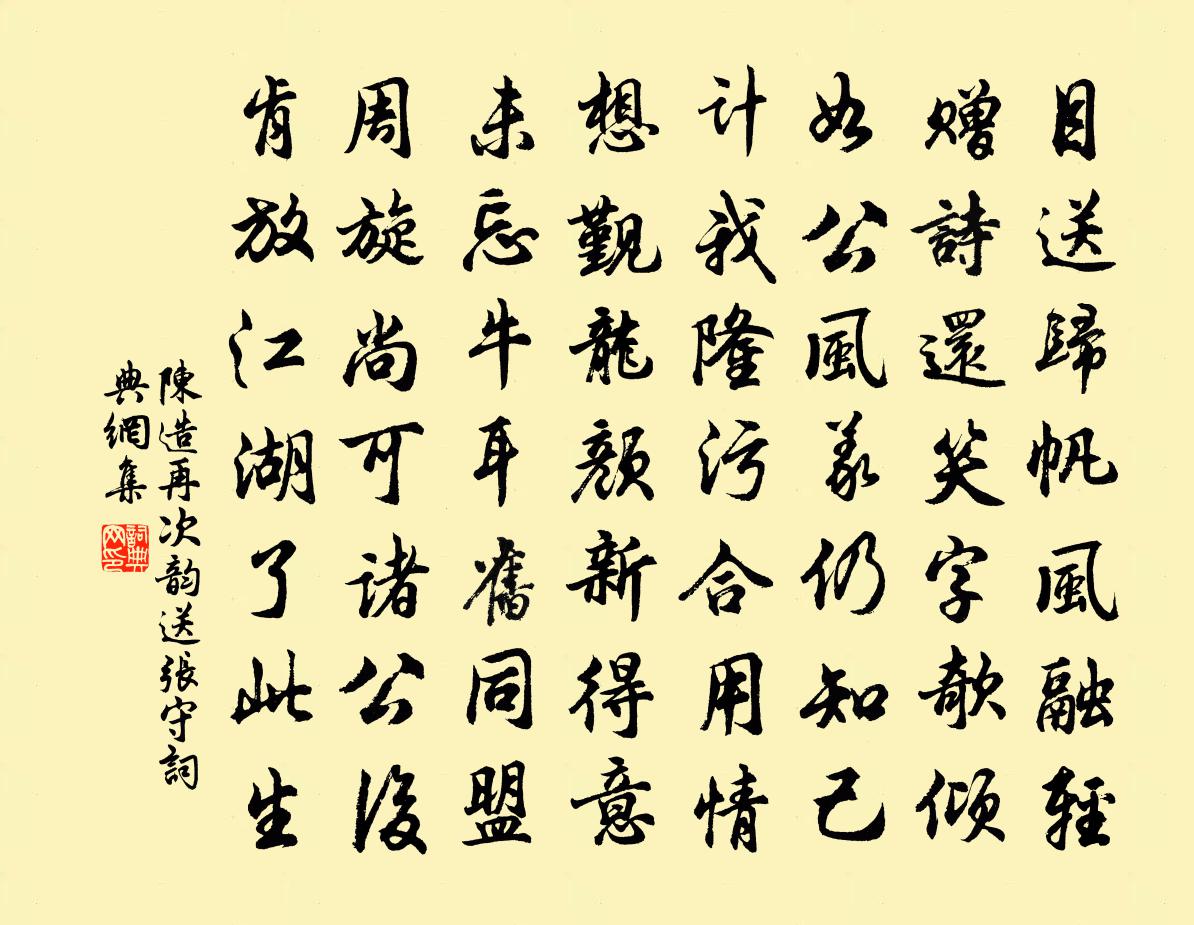 目送歸帆風融輕
贈詩還笑字欹傾
如公風義仍知己
计我隆污合用情
想觀龍顏新得意
未忘牛耳舊同盟
周旋尚可諸公後
肯放江湖了此生
陳造再次韵送張守詞
典網集
詞典网印